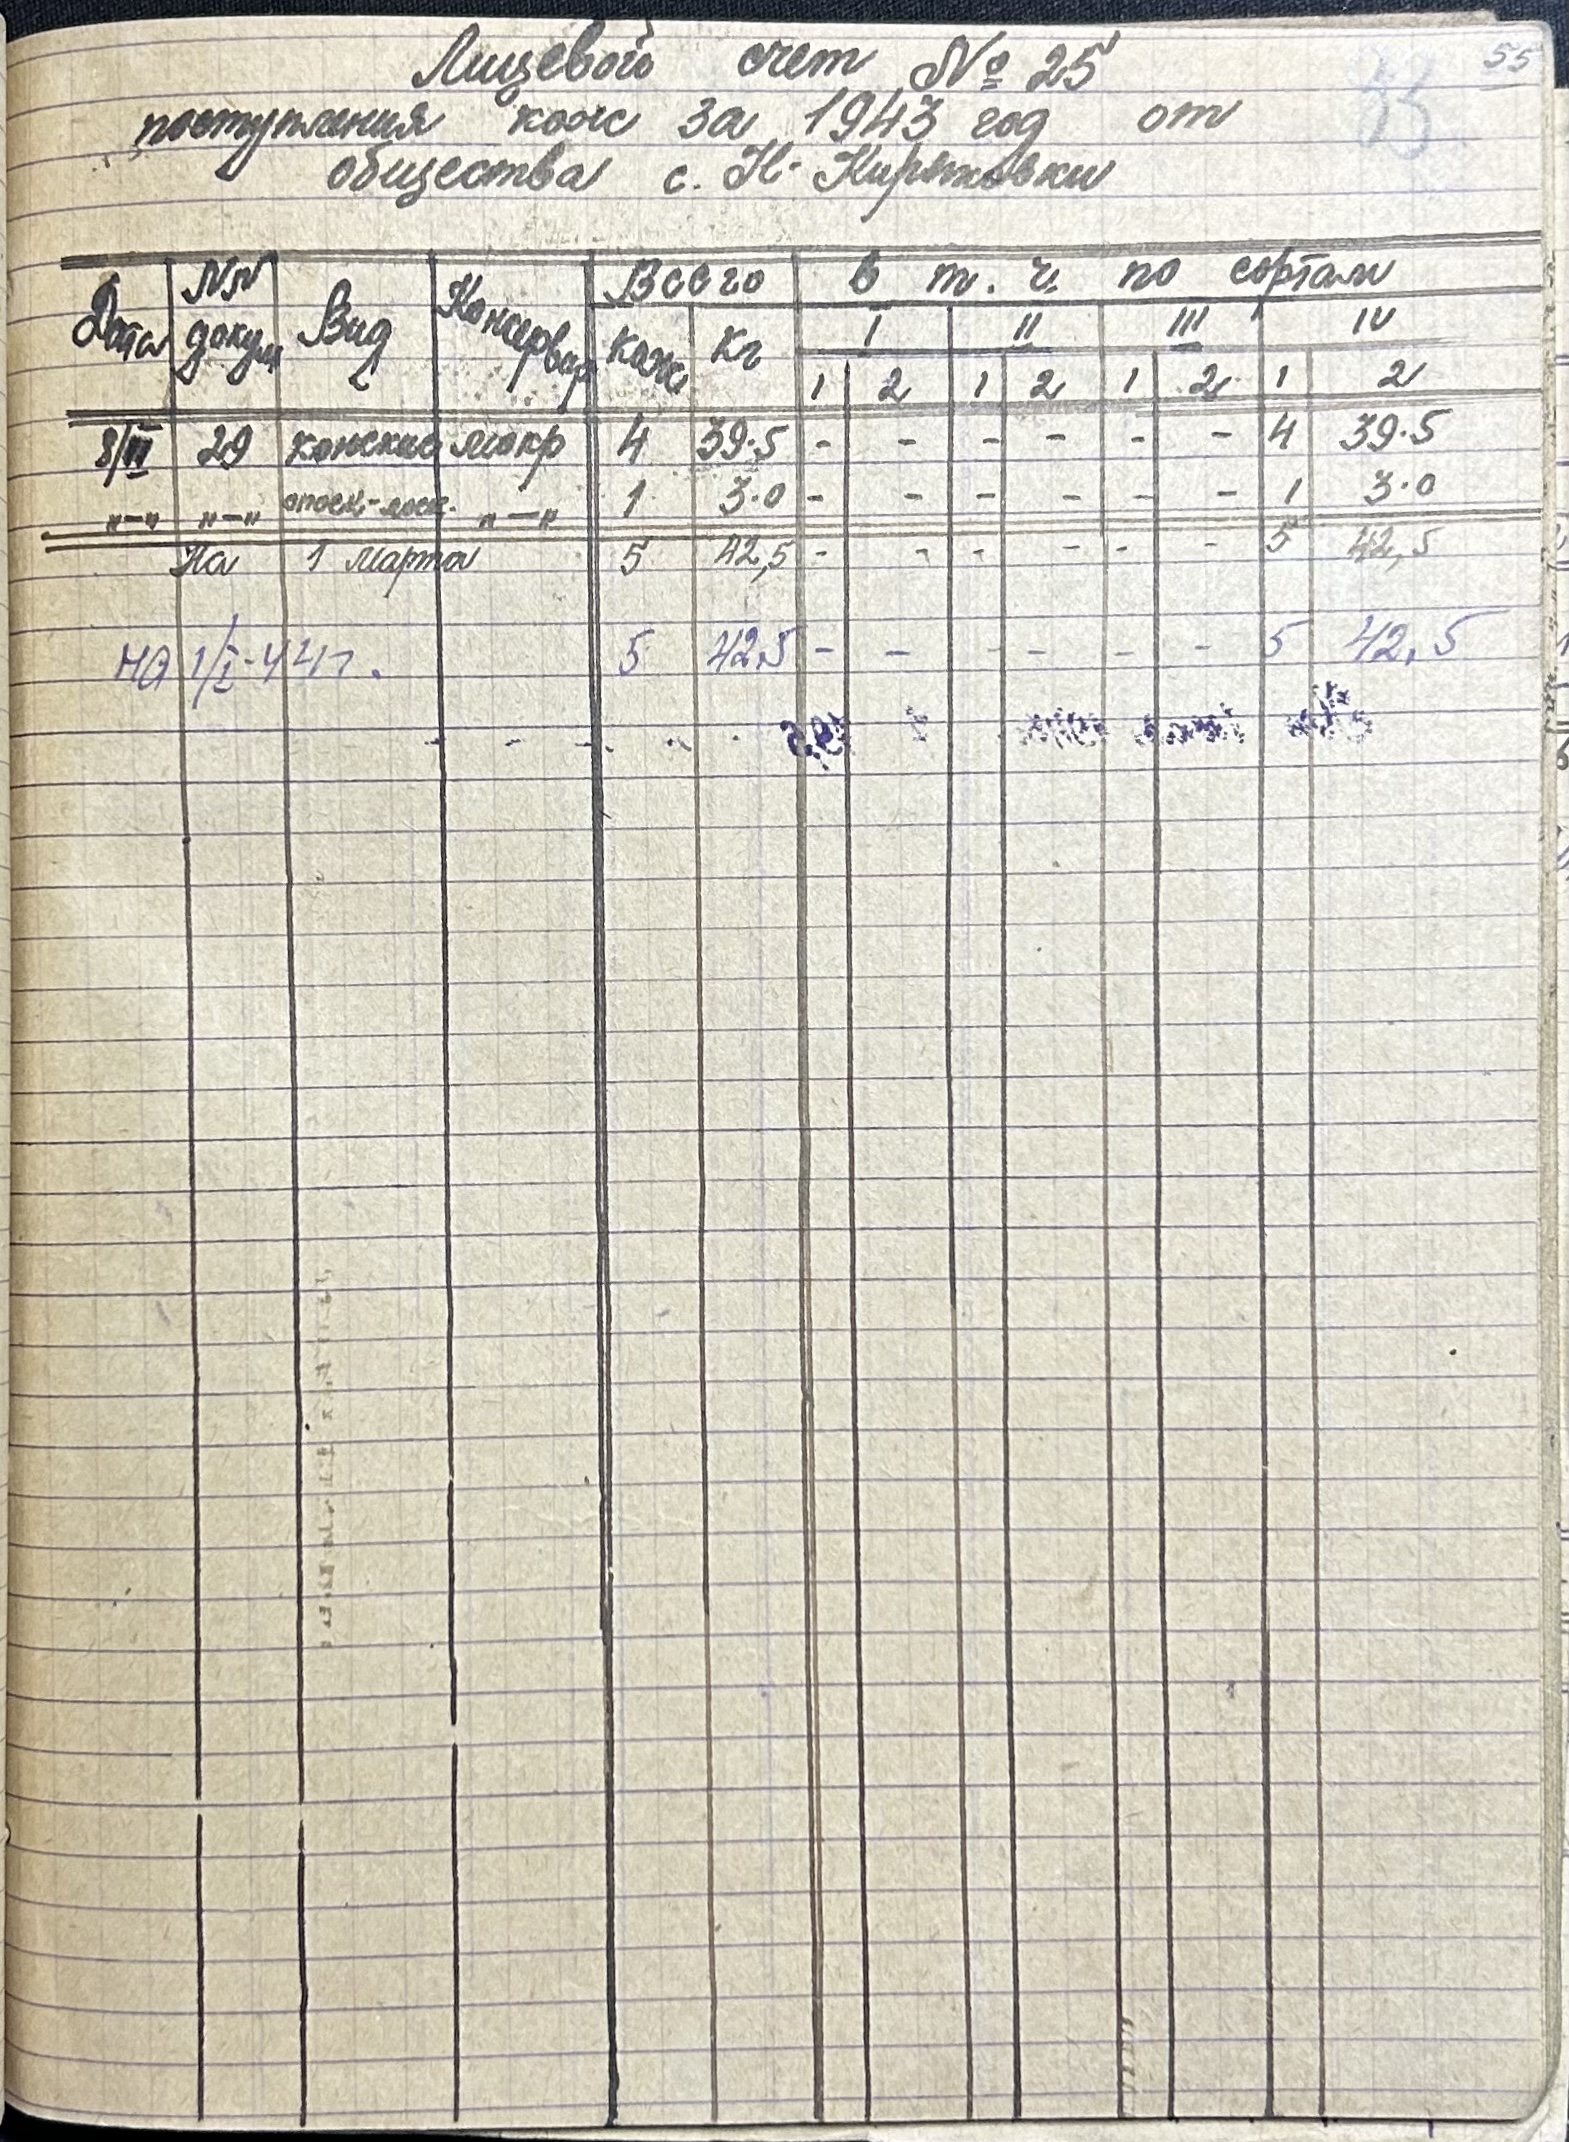 55
Лицевой счет № 25
поступления кож за 1943 год от
общества с. Н-Кирпиковки
Дата NN докум Вид Консервир Всего в т. ч. по сортам
кож кг I II III IV
1 2 1 2 1 2 1 2
8/II 29 конские мокр 4 39.5 - - - - - - 4 39.5
"-" "-" опоек "-" 1 3.0 - - - - - - 1 3.0
На 1 марта 5 42,5 - - - - - - 5 42,5
на 1/I-44 г. 5 42,5 - - - - - - 5 42,5